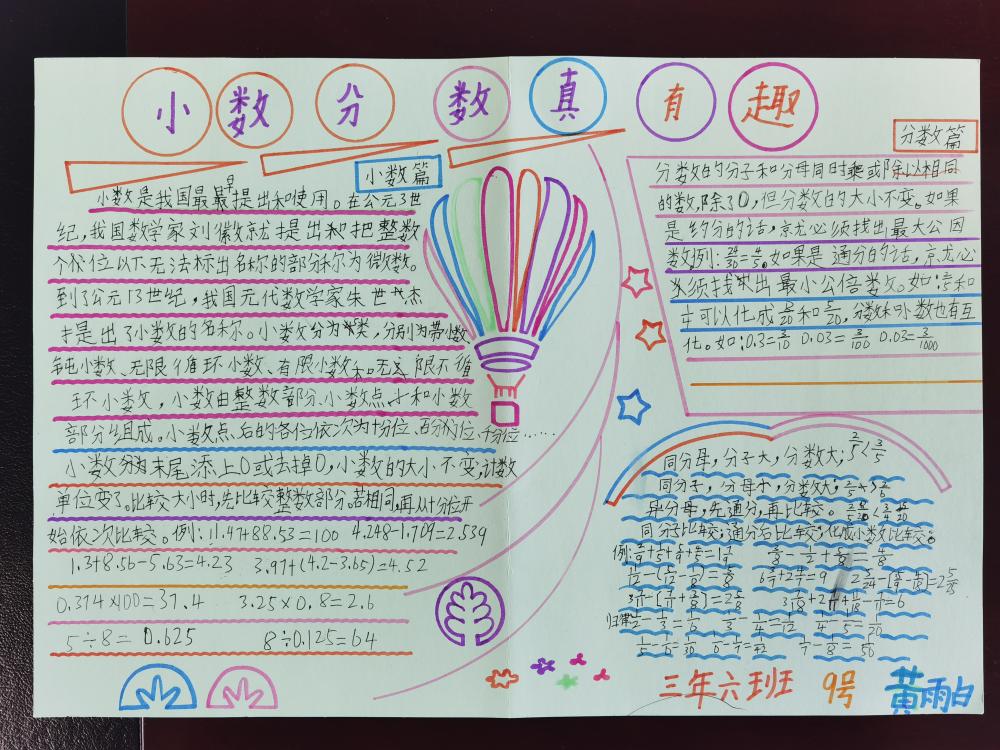 小数分数真有趣
小数篇
小数是我国最最早提出和使用。在公元3世
纪，我国数学家刘徽就提出和把整数
个位以下无法标出名称的部分称为微数。
到了公元13世纪，我国元代数学家朱世杰
提出了小数的名称。小数分为类，分别为带小数
纯小数、无限循环小数、有限小数和无限不循
环小数，小数由整数部分、小数点和小数
部分组成。小数点后的各位依次为十份位、百分位、千分位……
小数分为末尾添上0或去掉0，小数的大小不变，计数
单位变了。比较大小时，先比较整数部分。若相同，再从十分位开
始依次比较。例：11.47+88.53=100 4.248-1.709=2.539
1.3+8.56-5.63=4.23 3.97+(4.2-3.65)=4.52
0.374×100=37.4 3.25×0.8=2.6
5÷8=0.625 8÷0.125=64
分数篇
分数的分子和分母同时乘或除以相同
的数，除了0，但分数的大小不变。如果
是约分的话，就必须找出最大公因
数例：24/30=4/5。如果是通分的话，就必
必须找出最小公倍数。如：和
可以化成和5/20，分数和小数也有互
化。如：0.3=3/10 0.03=3/100 0.03=3/1000
同分母，分子大，分数大；2/5<3/5
同分子，分母小，分数大；
异分母，先通分，再比较。
同分比较；通分后比较；化成小数比较。
例：
归律
三年六班 9号 黄雨白